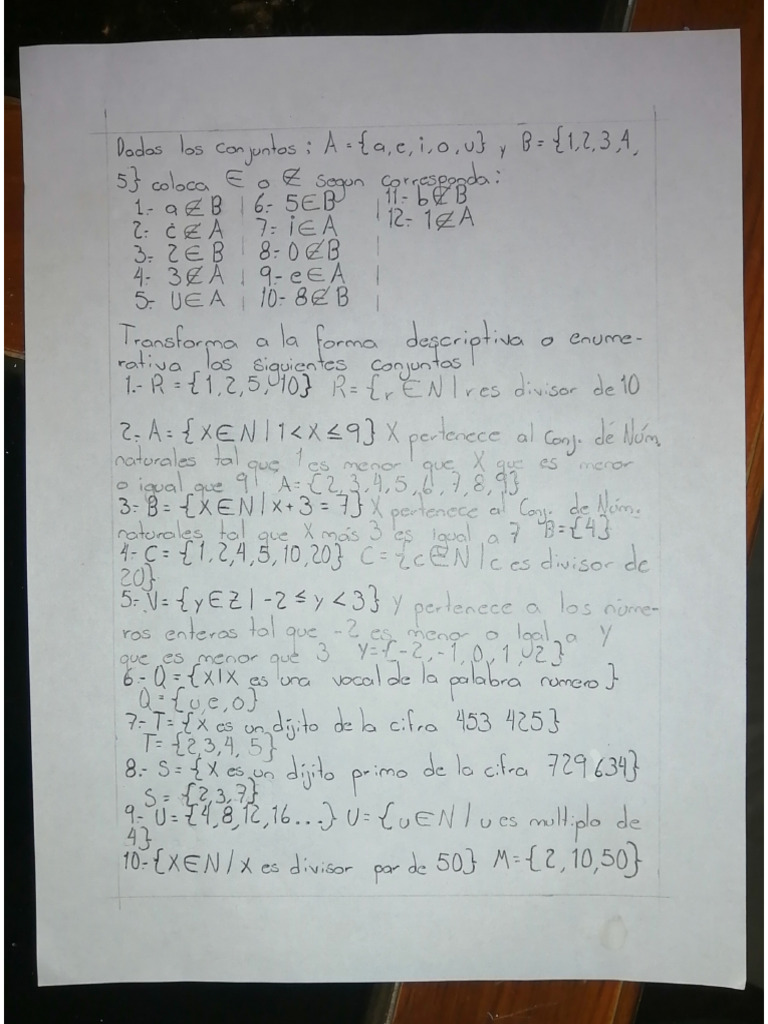 Dados los conjuntos: A = {a, e, i, o, u} y B = {1, 2, 3, 4,
5} coloca ∈ o ∉ segun corresponda:
1.- a ∉ B | 6.- 5 ∈ B | 11.- b ∉ B
2.- c ∉ A | 7.- i ∈ A | 12.- 1 ∉ A
3.- 2 ∈ B | 8.- 0 ∉ B |
4.- 3 ∉ A | 9.- e ∈ A |
5.- U ∈ A | 10.- 8 ∉ B |
Transforma a la forma descriptiva o enume-
rativa los siguientes conjuntos
1.- R = {1, 2, 5, 10} R = {r ∈ N | r es divisor de 10
2.- A = {X ∈ N | 1 < X ≤ 9} X pertenece al Conj. de Núm
naturales tal que 1 es menor que X que es menor
o igual que 9 A = {2, 3, 4, 5, 6, 7, 8, 9}
3.- B = {X ∈ N | x + 3 = 7} X pertenece al Conj. de Núm.
naturales tal que X más 3 es igual a 7 B = {4}
4.- C = {1, 2, 4, 5, 10, 20} C = {c ∈ N | c es divisor de
20}
5.- V = {y ∈ Z | -2 ≤ y < 3} Y pertenece a los núme-
ros enteros tal que -2 es menor o Igal a Y
que es menor que 3 Y = {-2, -1, 0, 1, 2}
6.- Q = {X | X es una vocal de la palabra numero}
Q = {u, e, o}
7.- T = {x es un dijito de la cifra 453 425}
T = {2, 3, 4, 5}
8.- S = {X es un dijito primo de la cifra 729 634}
S = {2, 3, 7}
9.- U = {4, 8, 12, 16...} U = {u ∈ N / u es multiplo de
4}
10.- {X ∈ N / X es divisor par de 50} M = {2, 10, 50}